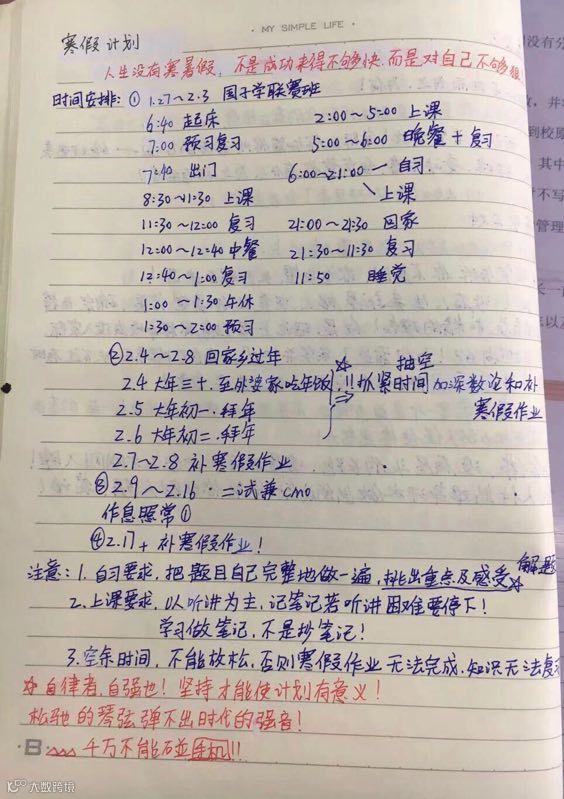 · MY SIMPLE LIFE ·
寒假计划
人生没有寒暑假,不是成功来得不够快,而是对自己不够狠
时间安排:① 1.27~2.3 国子学联赛班
6:40 起床 2:00~5:00 上课
7:00 预习复习 5:00~6:00 晚餐+复习
7:40 出门 6:00~21:00 一自习
8:30~11:30 上课 \上课
11:30~12:00 复习 21:00~21:30 回家
12:00~12:40 中餐 21:30~11:30 复习
12:40~1:00 复习 11:50 睡觉
1:00~1:30 午休
1:30~2:00 预习
② 2.4~2.8 回家乡过年
2.4 大年三十,至外婆家吃年饭 ☆!!抓紧时间 抽空 加深数论和补
2.5 大年初一.拜年 ⇒ 寒假作业
2.6 大年初二.拜年
2.7~2.8 补寒假作业
③ 2.9~2.16 · 二试兼cmo
作息照常①
④ 2.17+ 补寒假作业!
注意:1.自习要求,把题目自己完整地做一遍,挑出重点及感受☆解题
2.上课要求,以听讲为主,记笔记若听讲困难要停下!
学习做笔记,不是抄笔记!
3.空余时间,不能放松,否则寒假作业无法完成,知识无法复
☆自律者,自强也!坚持才能使计划有意义!
松弛的琴弦弹不出时代的强音!
·B· 千万不能碰手机!!
大数跨境
没有分
到校原
其中
不写
管理